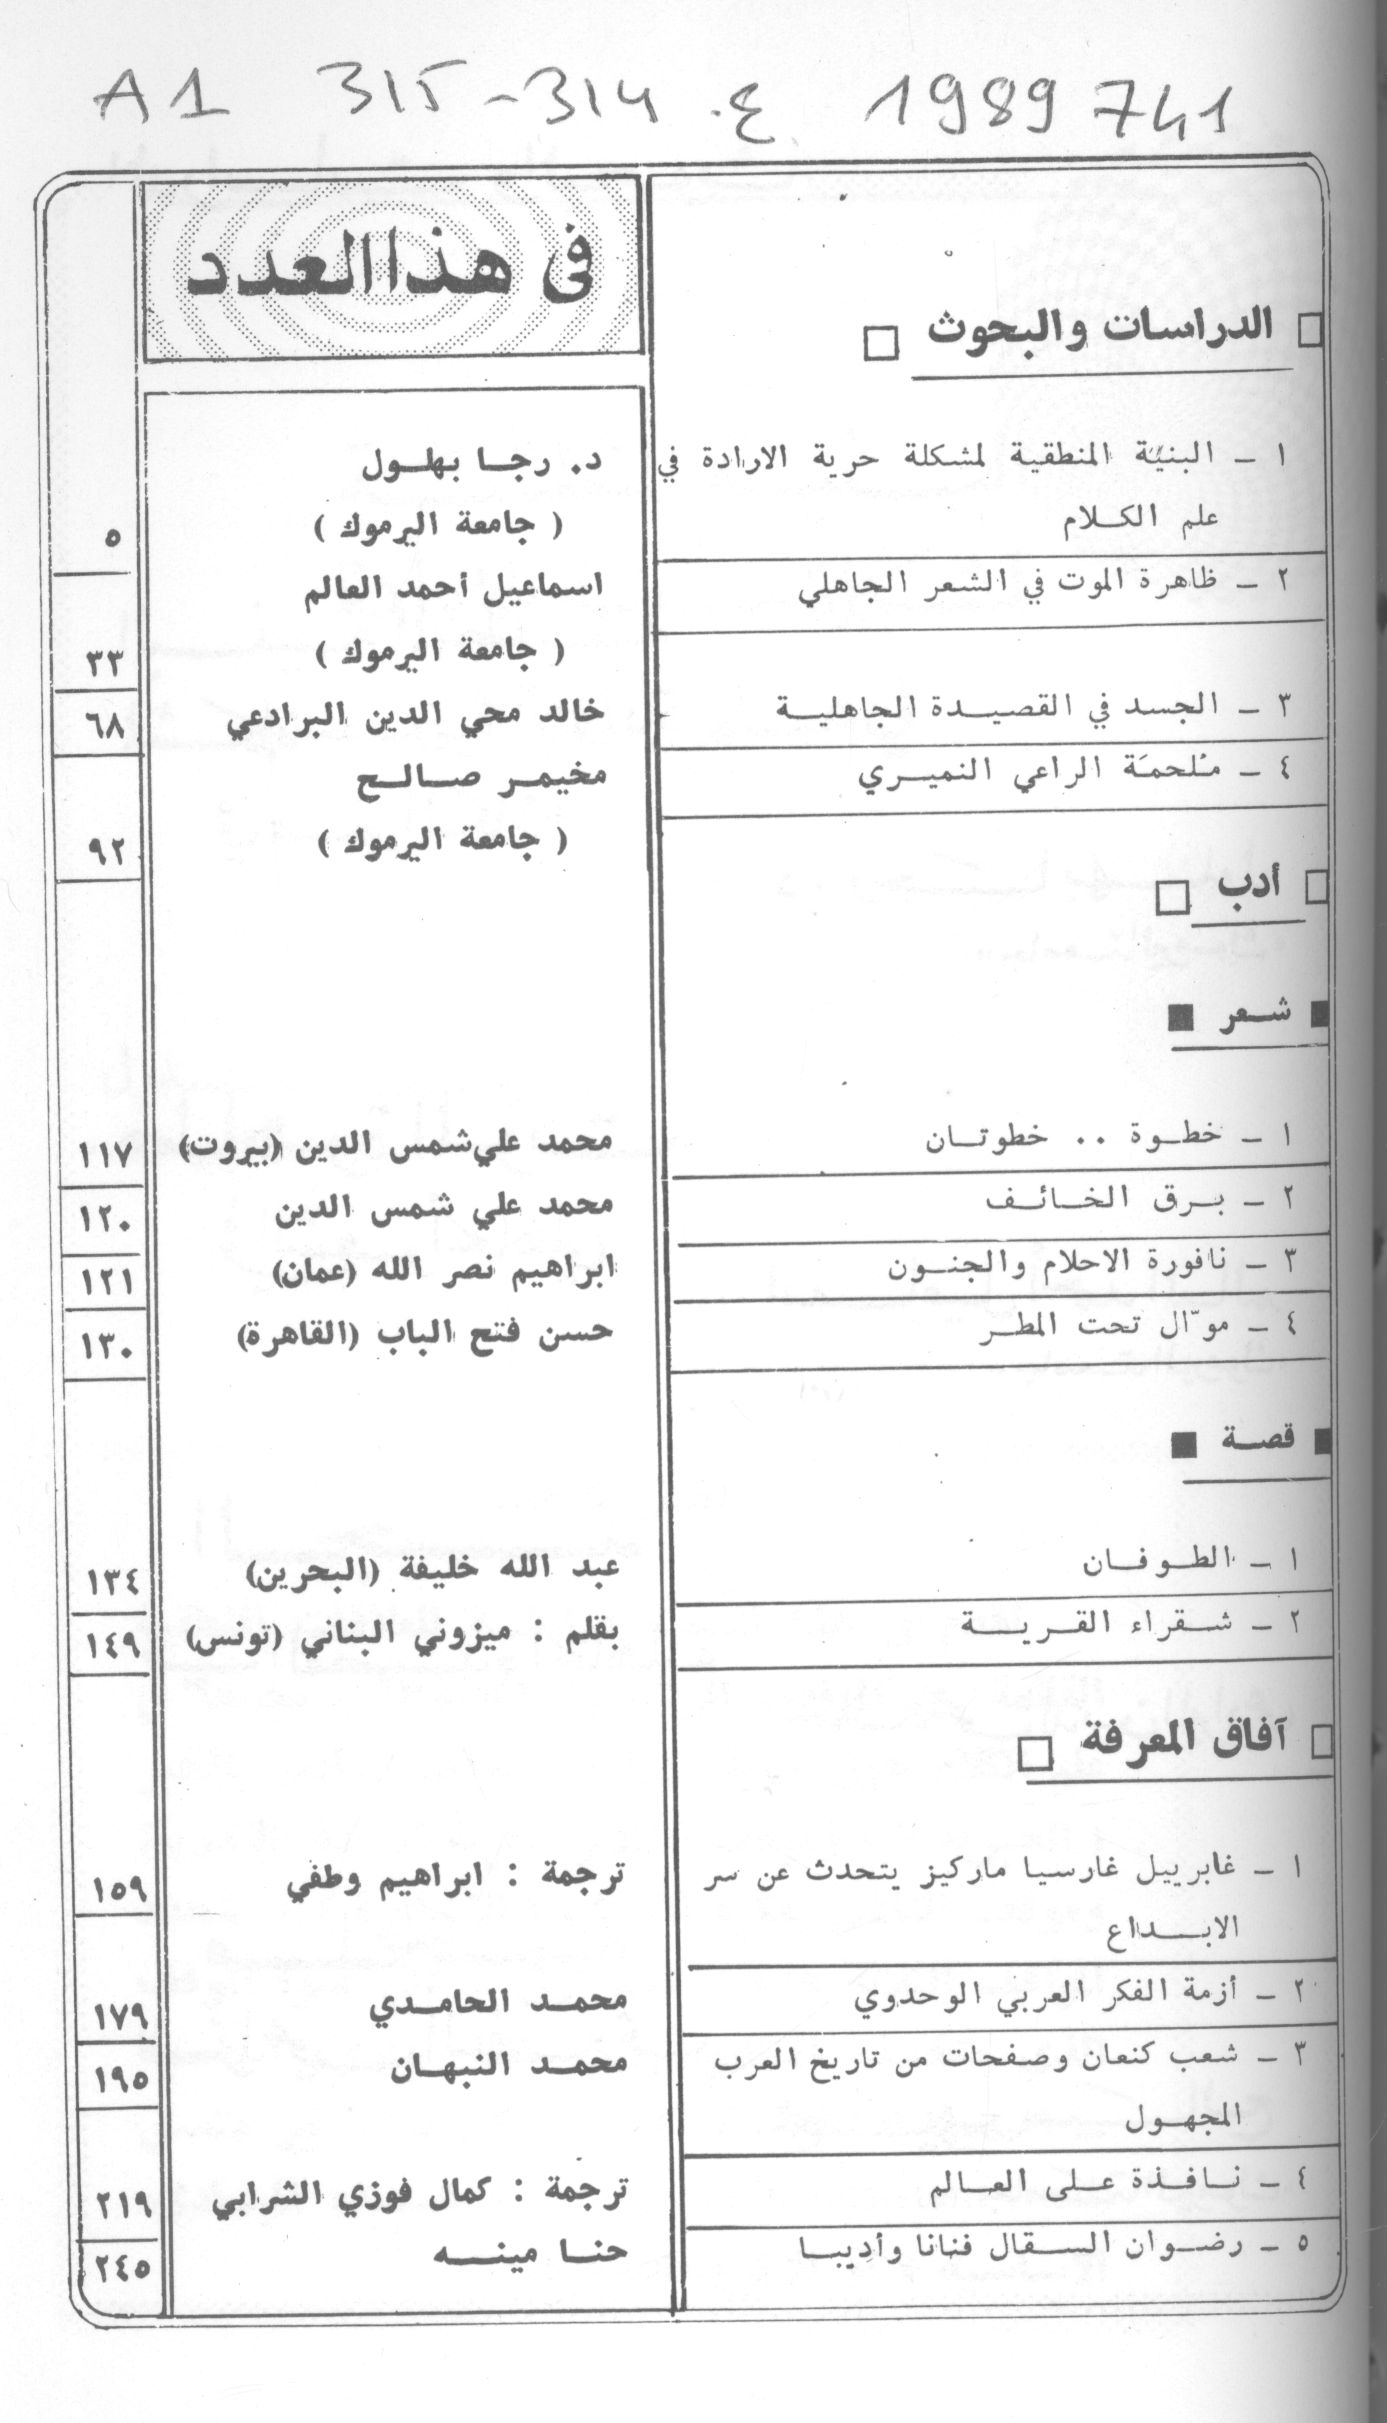 A1 315-314 ع. 1989 741
في هذا العدد
الدراسات والبحوث
١ ـ البنيّة المنطقية لمشكلة حرية الارادة في د. رجا بهلول
علم الكلام ( جامعة اليرموك ) ٥
٢ ـ ظاهرة الموت في الشعر الجاهلي اسماعيل أحمد العالم
( جامعة اليرموك ) ٣٣
٣ ـ الجسد في القصيدة الجاهلية خالد محي الدين البرادعي ٦٨
٤ ـ مُلحمَة الراعي النميري مخيمر صالح
( جامعة اليرموك ) ٩٢
أدب
شعر
١ ـ خطوة .. خطوتان محمد علي شمس الدين (بيروت) ١١٧
٢ ـ برق الخائف محمد علي شمس الدين ١٢٠
٣ ـ نافورة الاحلام والجنون ابراهيم نصر الله (عمان) ١٢١
٤ ـ موّال تحت المطر حسن فتح الباب (القاهرة) ١٣٠
قصة
١ ـ الطوفان عبد الله خليفة (البحرين) ١٣٤
٢ ـ شقراء القرية بقلم : ميزوني البناني (تونس) ١٤٩
آفاق المعرفة
١ ـ غابرييل غارسيا ماركيز يتحدث عن سر ترجمة : ابراهيم وطفي ١٥٩
الابداع
٢ ـ أزمة الفكر العربي الوحدوي محمد الحامدي ١٧٩
٣ ـ شعب كنعان وصفحات من تاريخ العرب محمد النبهان ١٩٥
المجهول
٤ ـ نافذة على العالم ترجمة : كمال فوزي الشرابي ٢١٩
٥ ـ رضوان السقال فنانا وأديبا حنا مينه ٢٤٥